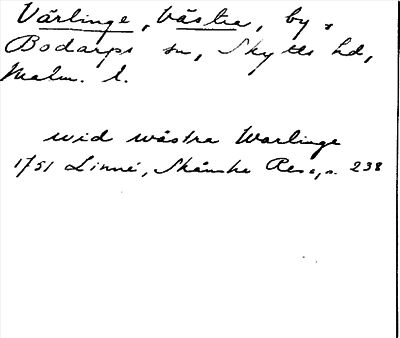 Värlinge, Västra, by,
Bodarps sn, Skytts hd,
Malm. l.
wid wästra Warlinge
1751 Linné, Skånska Resa, s. 238